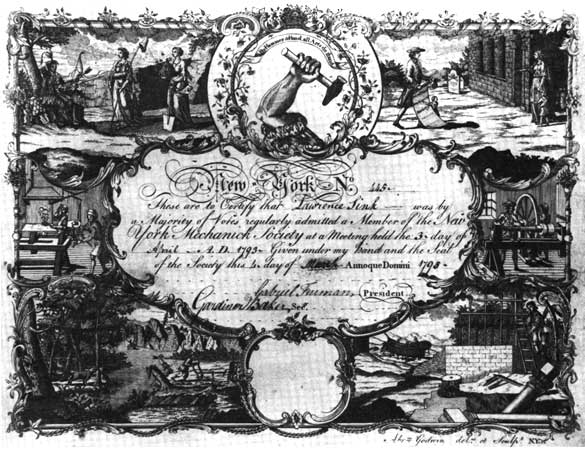 Hammer & Hand all Arts do
New-York No. 445.
These are to Certify that Lawrence Fink — was by
a Majority of Votes regularly admitted a Member of the New
York Mechanick Society at a Meeting held the 3 day of
April — A. D. 1793 - Given under my Hand and the Seal
of the Society this 4 day of March Annoque Domini 1793 -
Gabriel Furman, President
Gardiner Baker, Sec.
Godwin del. et Sculpt. NEW